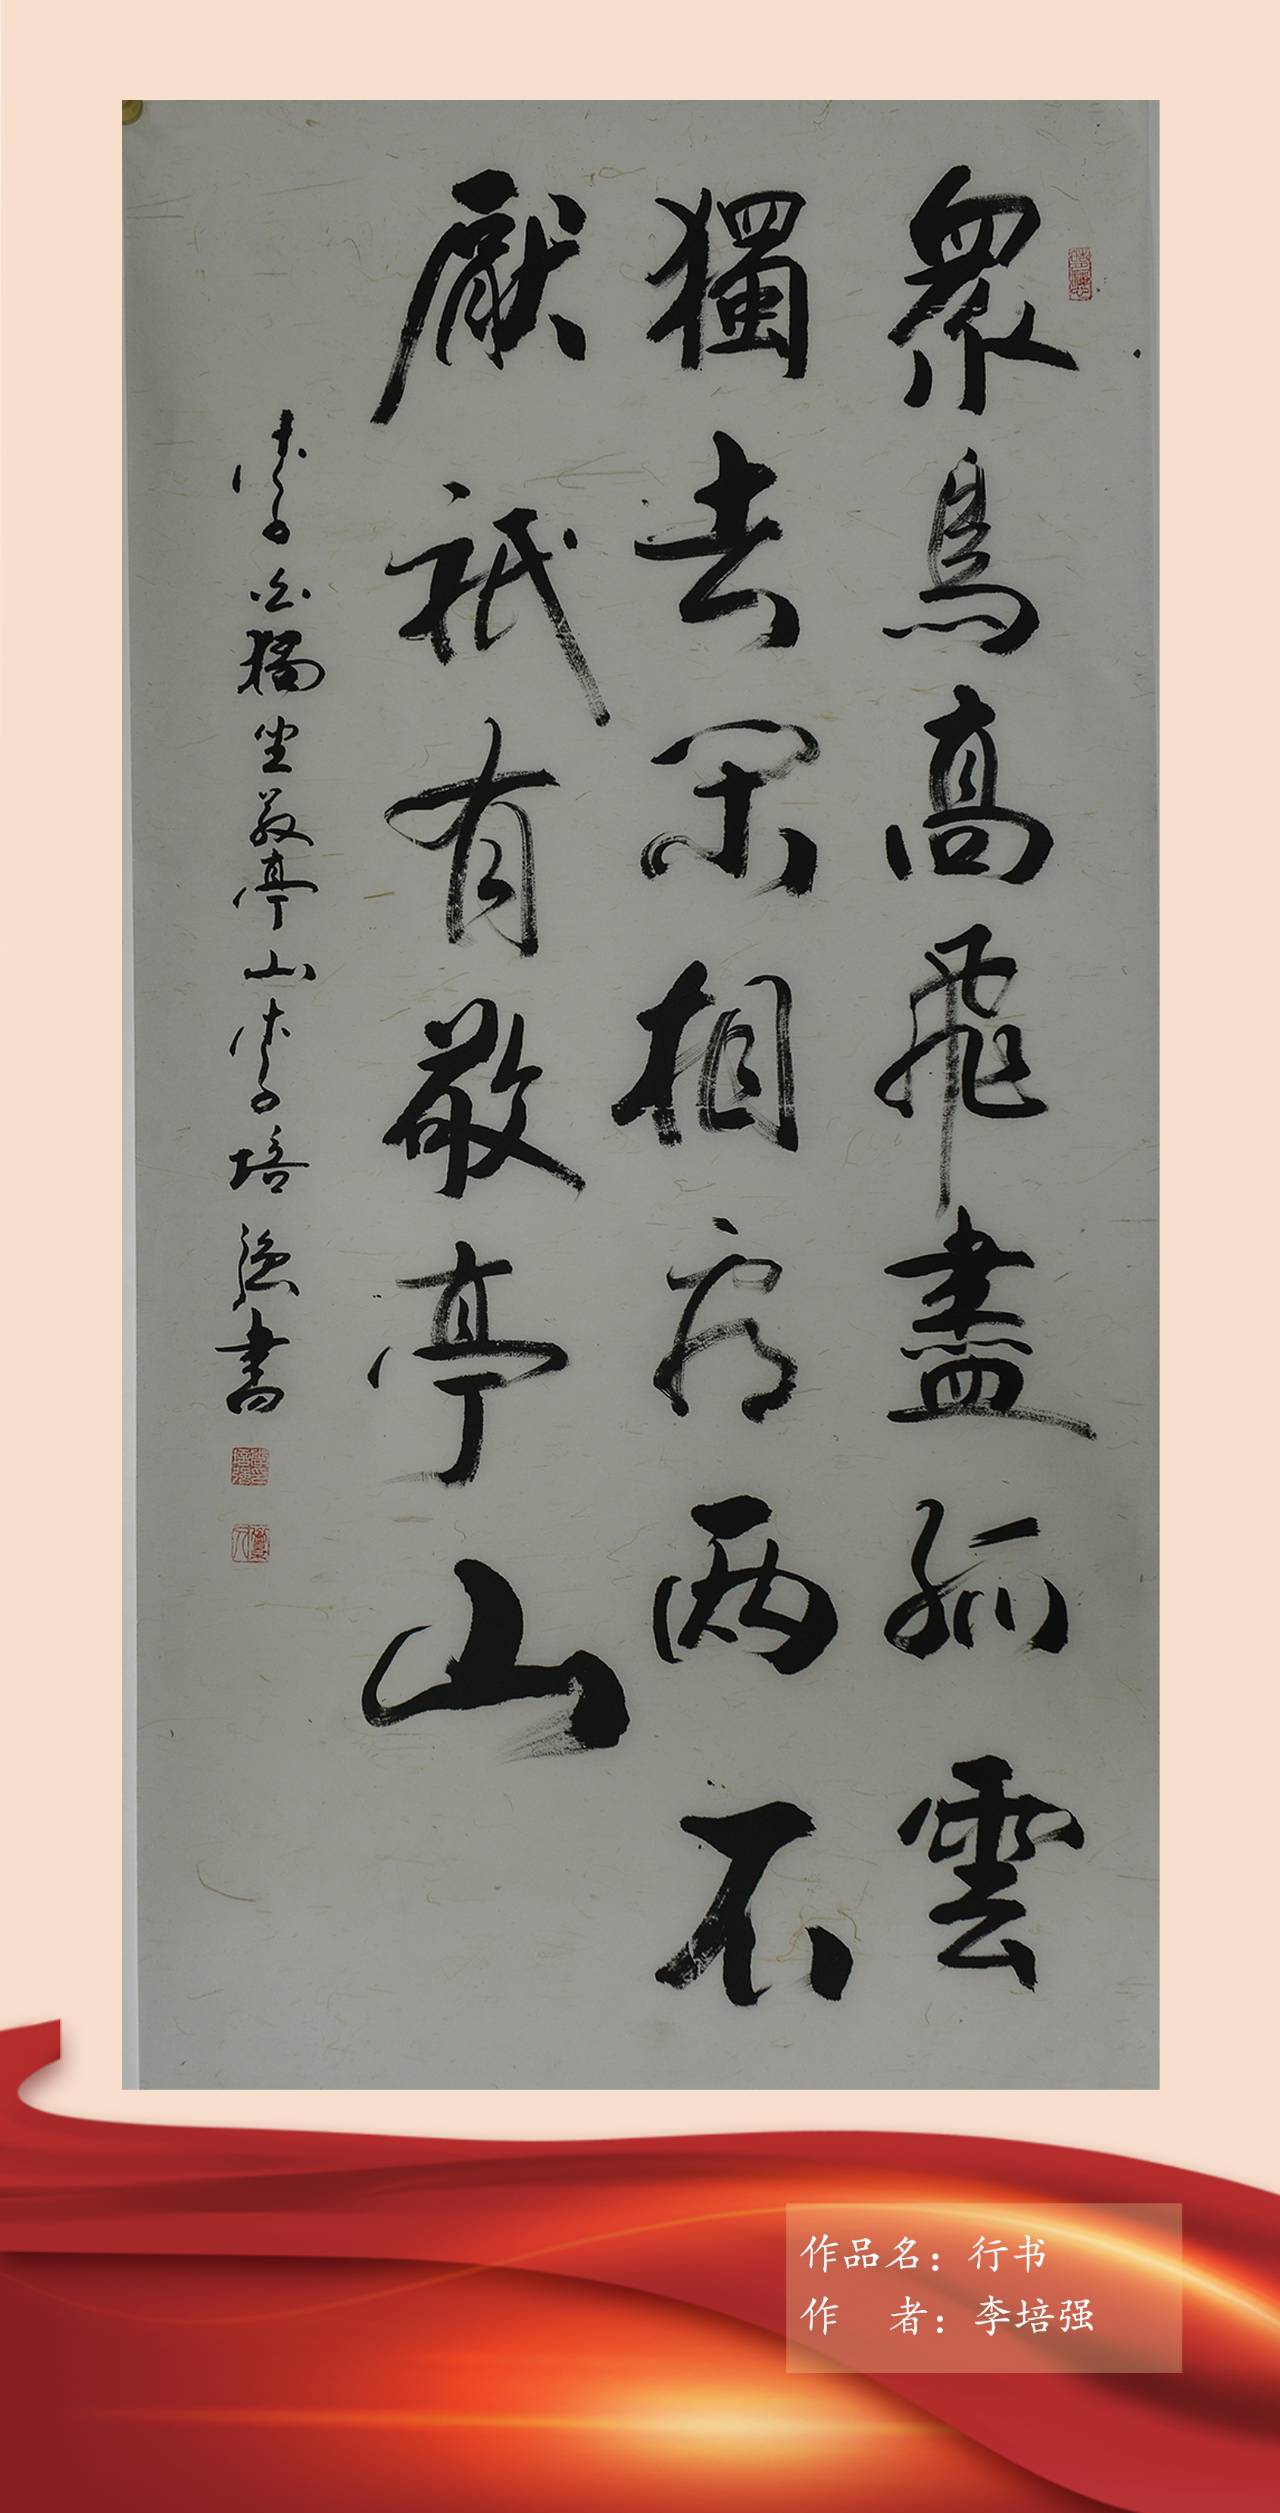 眾鳥高飛盡孤雲
獨去閑相看兩不
厭祇有敬亭山
李白獨坐敬亭山李培强書
作品名：行书
作　者：李培强